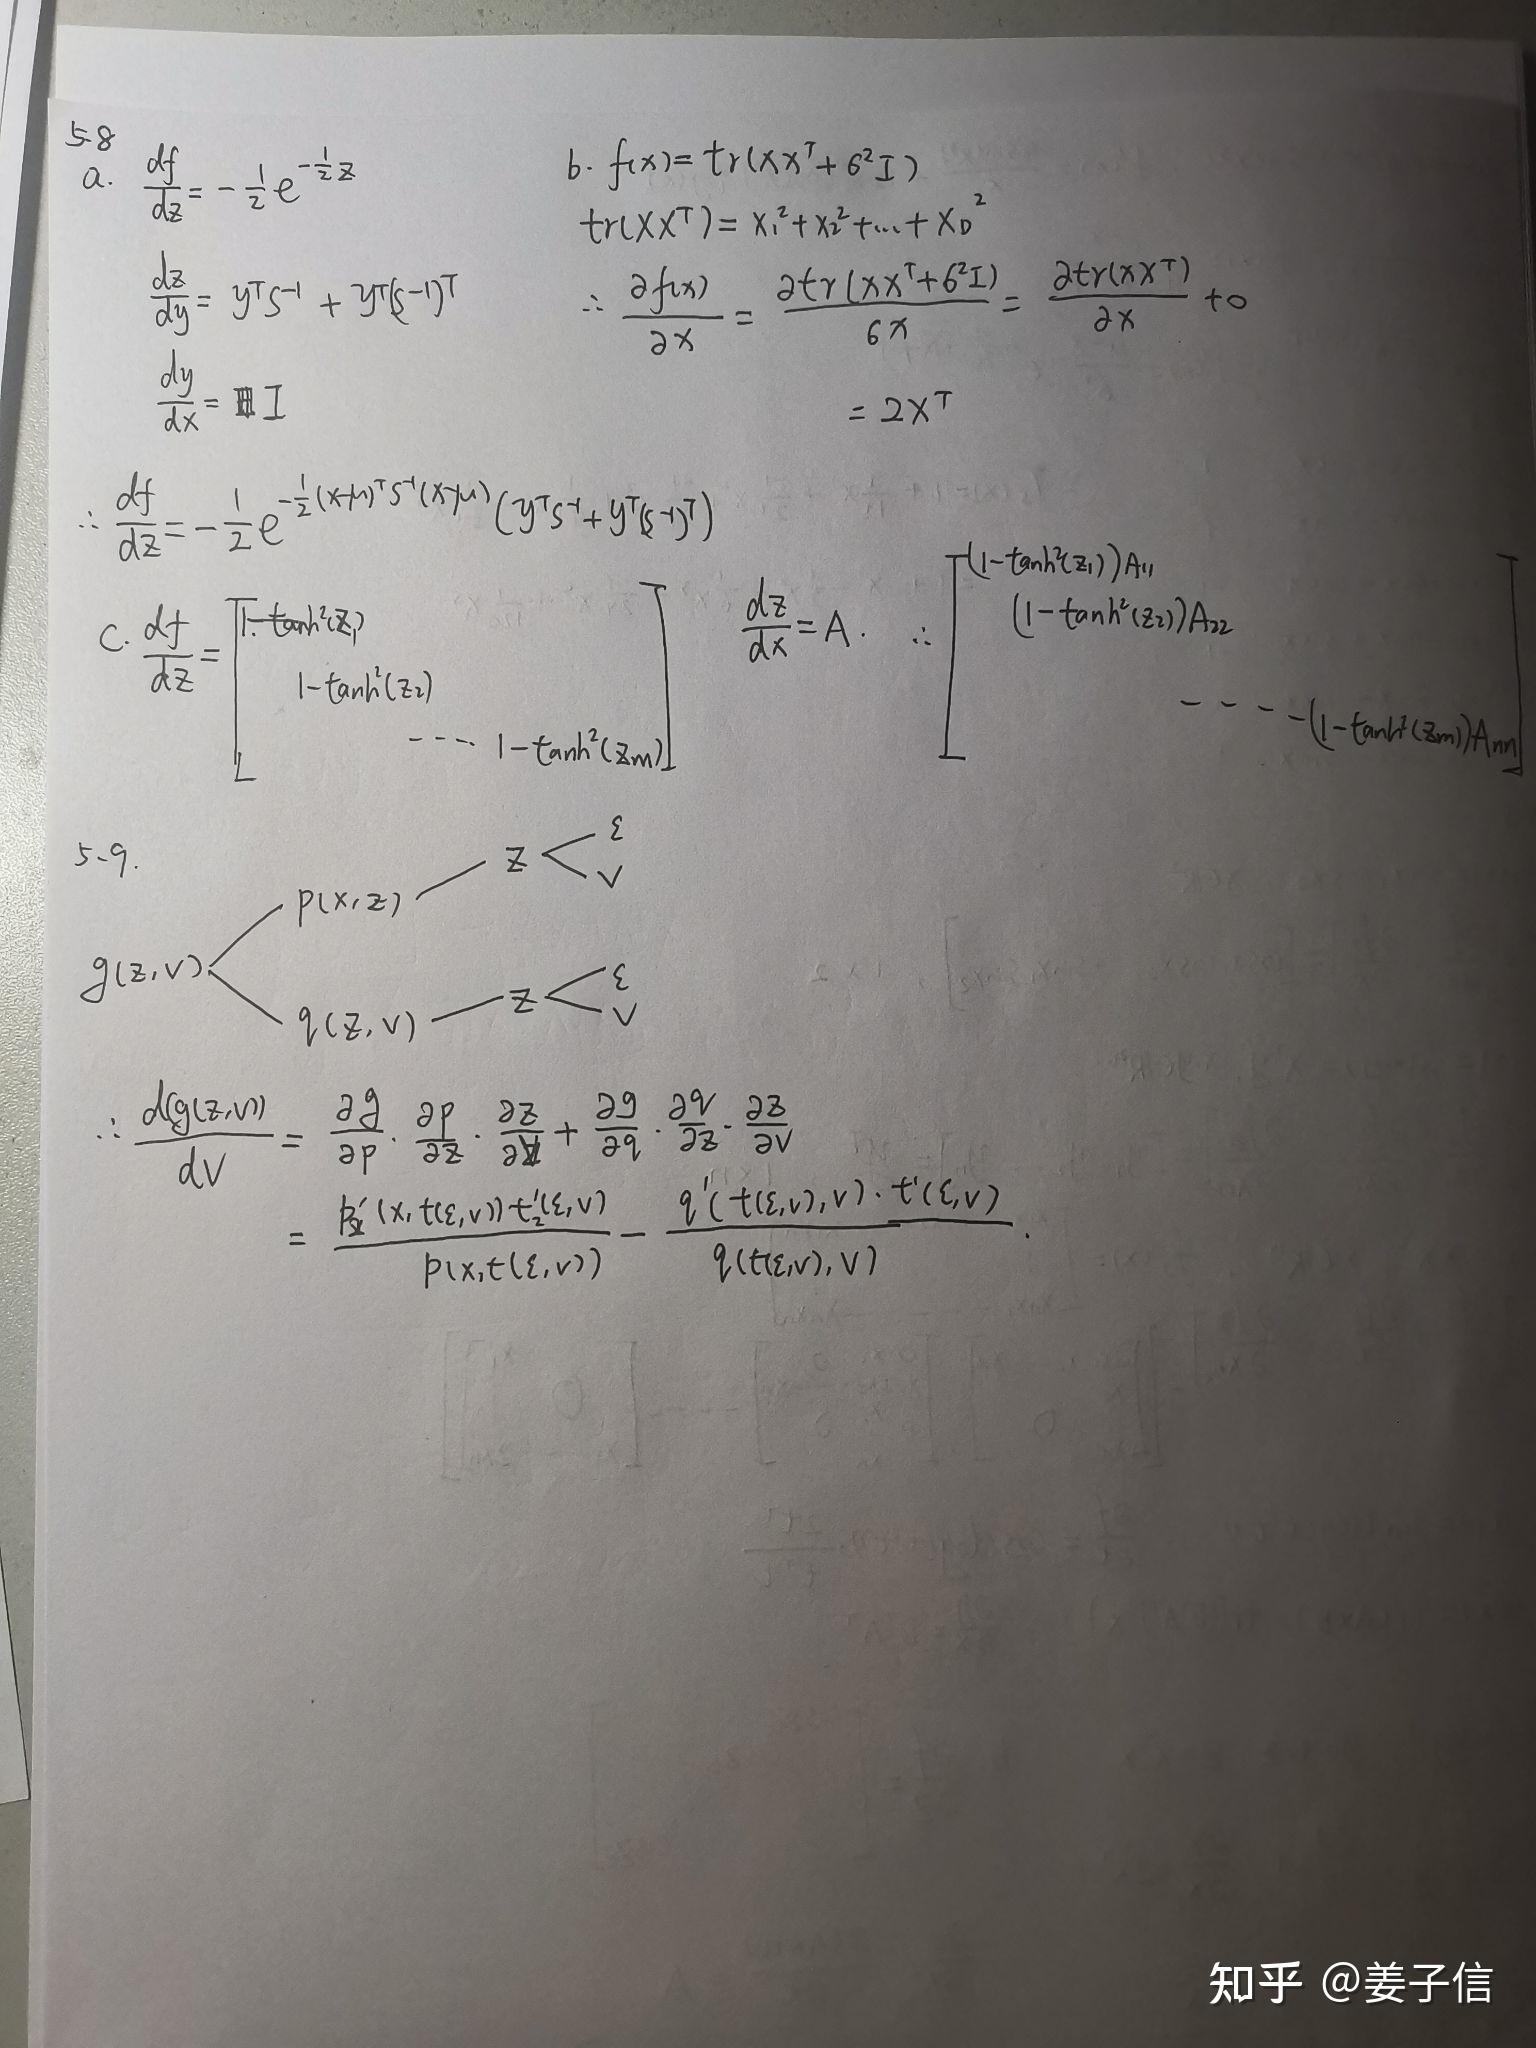 5-8
a. df/dz = -1/2 e^{-1/2 z}
dz/dy = y^T S^{-1} + y^T(S^{-1})^T
dy/dx = I
∴ df/dz = -1/2 e^{-1/2 (x-μ)^T S^{-1} (x-μ)} (y^T S^{-1} + y^T(S^{-1})^T)
b. f(x) = tr(xx^T + 6^2 I)
tr(xx^T) = x_1^2 + x_2^2 + ... + x_D^2
∴ ∂f(x)/∂x = ∂tr(xx^T + 6^2 I)/6x = ∂tr(xx^T)/∂x + 0
= 2x^T
c. df/dz = [ 1-tanh^2(z_1)
1-tanh^2(z_2)
---- 1-tanh^2(z_m) ]
dz/dx = A. ∴ [ (1-tanh^2(z_1))A_11
(1-tanh^2(z_2))A_22
-----(1-tanh^2(z_m))A_nn ]
5-9.
z < ε
v
p(x,z)
g(z,v)
z < ε
v
q(z,v)
∴ d(g(z,v))/dv = ∂g/∂p · ∂p/∂z · ∂z/∂v + ∂g/∂q · ∂q/∂z · ∂z/∂v
= p'_2(x,t(ε,v)) t'_2(ε,v) / p(x,t(ε,v)) - q'(t(ε,v),v) · t'(ε,v) / q(t(ε,v),v) .
知乎 @姜子信